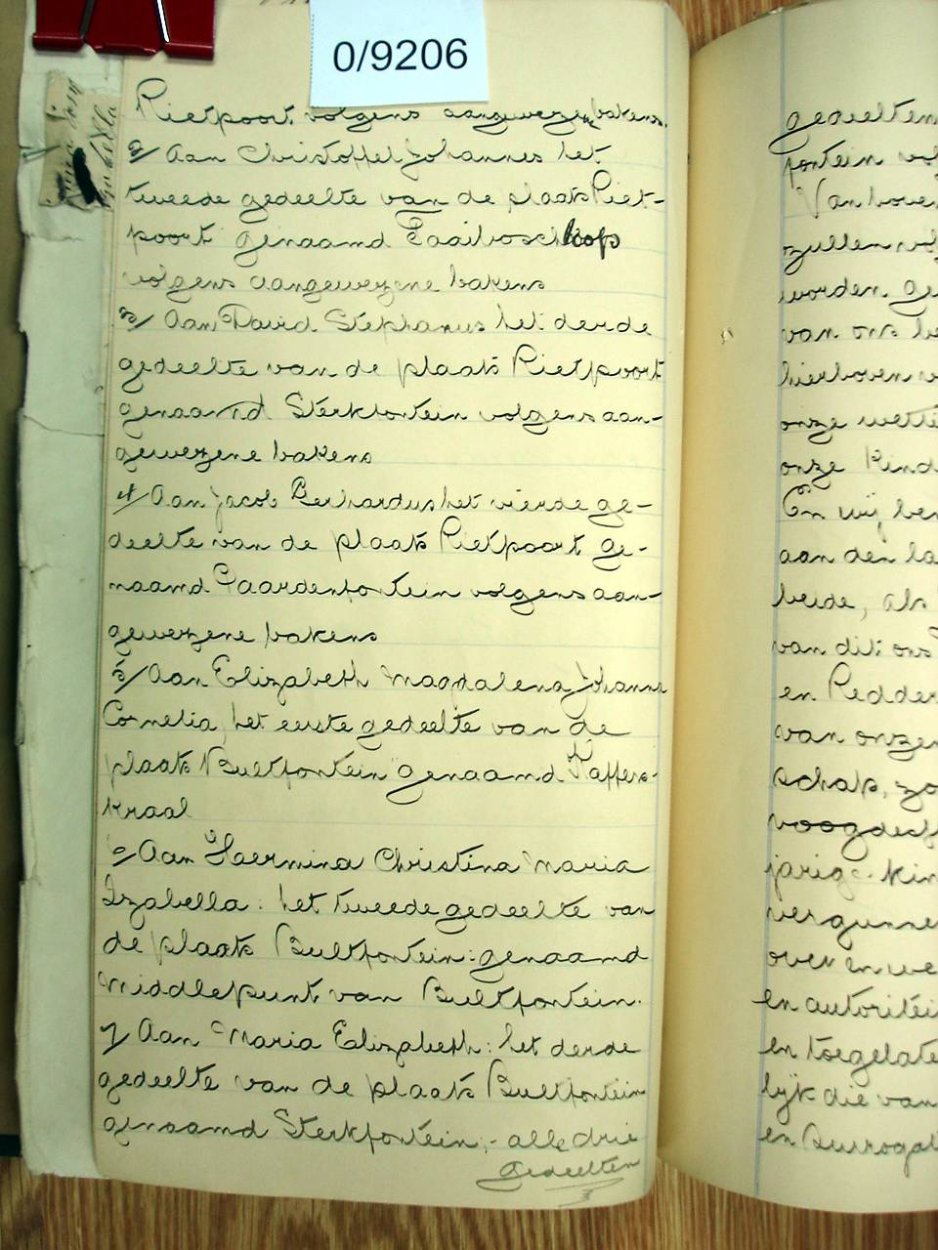 0/9206
Rietpoort, volgens aangewezen bakens.
2/ Aan Christoffel Johannes het
tweede gedeelte van de plaats Riet-
poort genaamd Paaiboschkop
volgens aangewezene bakens
3/ Aan David Stephanus het derde
gedeelte van de plaats Rietpoort
genaamd Sterkfontein volgens aan-
gewezene bakens
4/ Aan Jacob Gerhardus het vierde ge-
deelte van de plaats Rietpoort ge-
naamd Paardenfontein volgens aan-
gewezene bakens
5/ Aan Elizabeth Magdalena Johanna
Cornelia, het eerste gedeelte van de
plaats Bultfontein genaamd Kaffers-
kraal
6/ Aan Christina Maria
Izabella: het tweede gedeelte van
de plaats Bultfontein: genaamd
Middlepunt van Bultfontein.
7/ Aan Maria Elizabeth: het derde
gedeelte van de plaats Bultfontein
genaamd Sterkfontein, - alle drie
gedeelten
gedeelten
fontein vol
Van boven
zullen vol
worden. ge
van ons he
hierboven v
onze wetti
onze Kind
En wij ben
aan den la
beide, als
van dit ons
en Redder
van onzen
schap, zo
voogdesch
jarige kin
vergunne
over en we
en autoritei
en toegelate
lijk die van
en Surrogat